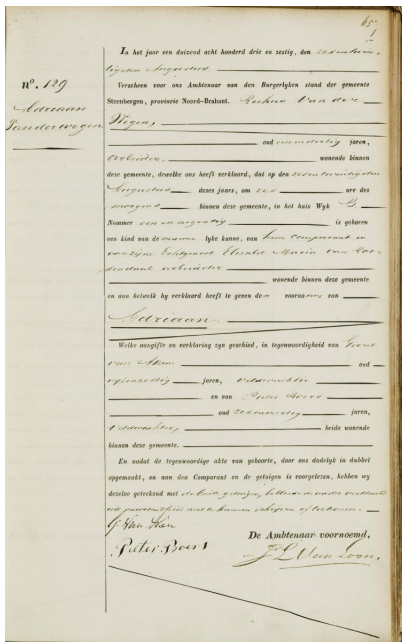 In het jaar een duizend acht honderd drie en zestig, den zevenentwin-
tigsten Augustus
nº. 129
Adriaan
Van der Wegen
Verscheen voor ons Ambtenaar van den Burgerlyken stand der gemeente
Steenbergen, provincie Noord-Brabant. Van der
Wegen,
oud jaren,
arbeider, wonende binnen
deze gemeente, dewelke ons heeft verklaard, dat op den zevenentwintigsten
Augustus dezes jaars, om zes ure des
morgens binnen deze gemeente, in het huis Wyk B
Nommer een en negentig is geboren
een kind van de mannelyke kunne, van hem comparant en
van zijne Echtgenoot Elisabet Maria van
arbeidster
wonende binnen deze gemeente
en aan hetwelk hy verklaard heeft te geven den voornaam van
Adriaan.
Welke aangifte en verklaring zyn geschied, in tegenwoordigheid van
oud
jaren, veldwachter
en van Pieter Boers
oud jaren,
beide wonende
binnen deze gemeente.
En nadat de tegenwoordige akte van geboorte, door ons dadelyk in dubbel
opgemaakt, en aan den Comparant en de getuigen is voorgelezen, hebben wy
dezelve geteekend met de beide getuigen,
niet te kunnen schrijven of teekenen.
De Ambtenaar voornoemd,
Pieter Boers
Van Loon